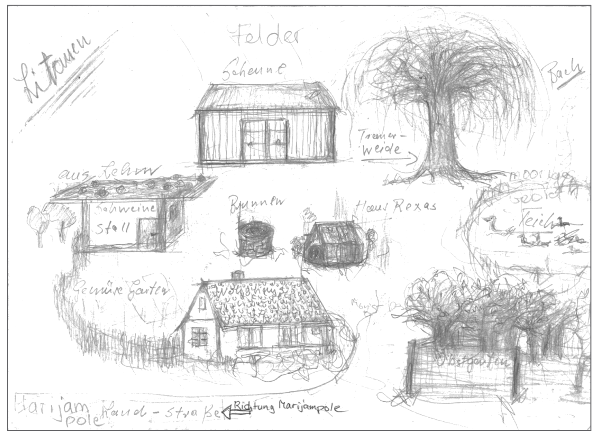 Litauen
Felder
Scheune
Bach
Trauer-
weide
aus Lehm
Schweine
Stall
Brunnen
Haus Rexas
Teich
Gemüse Garten
Obstgarten
Marijam
pole
Land-Straße
Richtung Marijampole